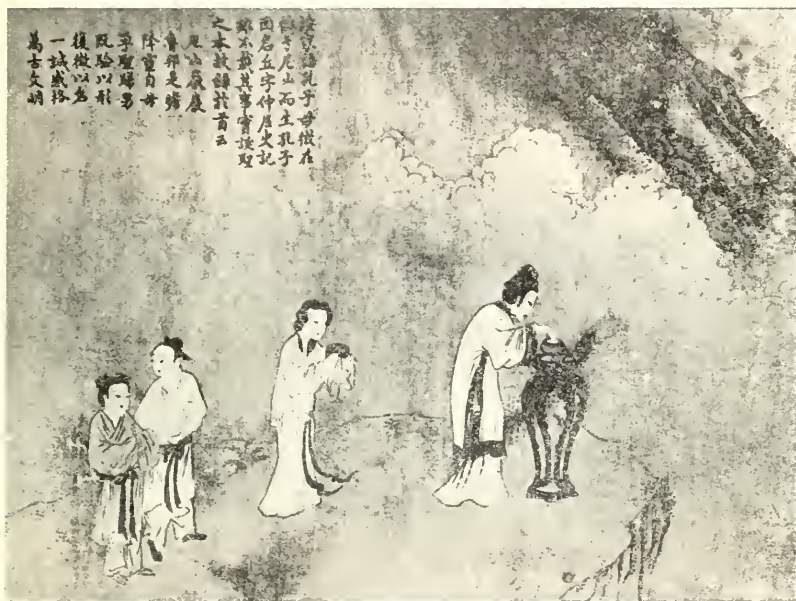 家語孔子母徵在
禱于尼山而生孔子
因名丘字仲尼史記
雖不載其事實誕聖
之本故諸於首云
尼山巖巖
魯邦是瞻
降靈自母
聖歸男
既驗以形
復徵以名
一誠感格
萬古文明